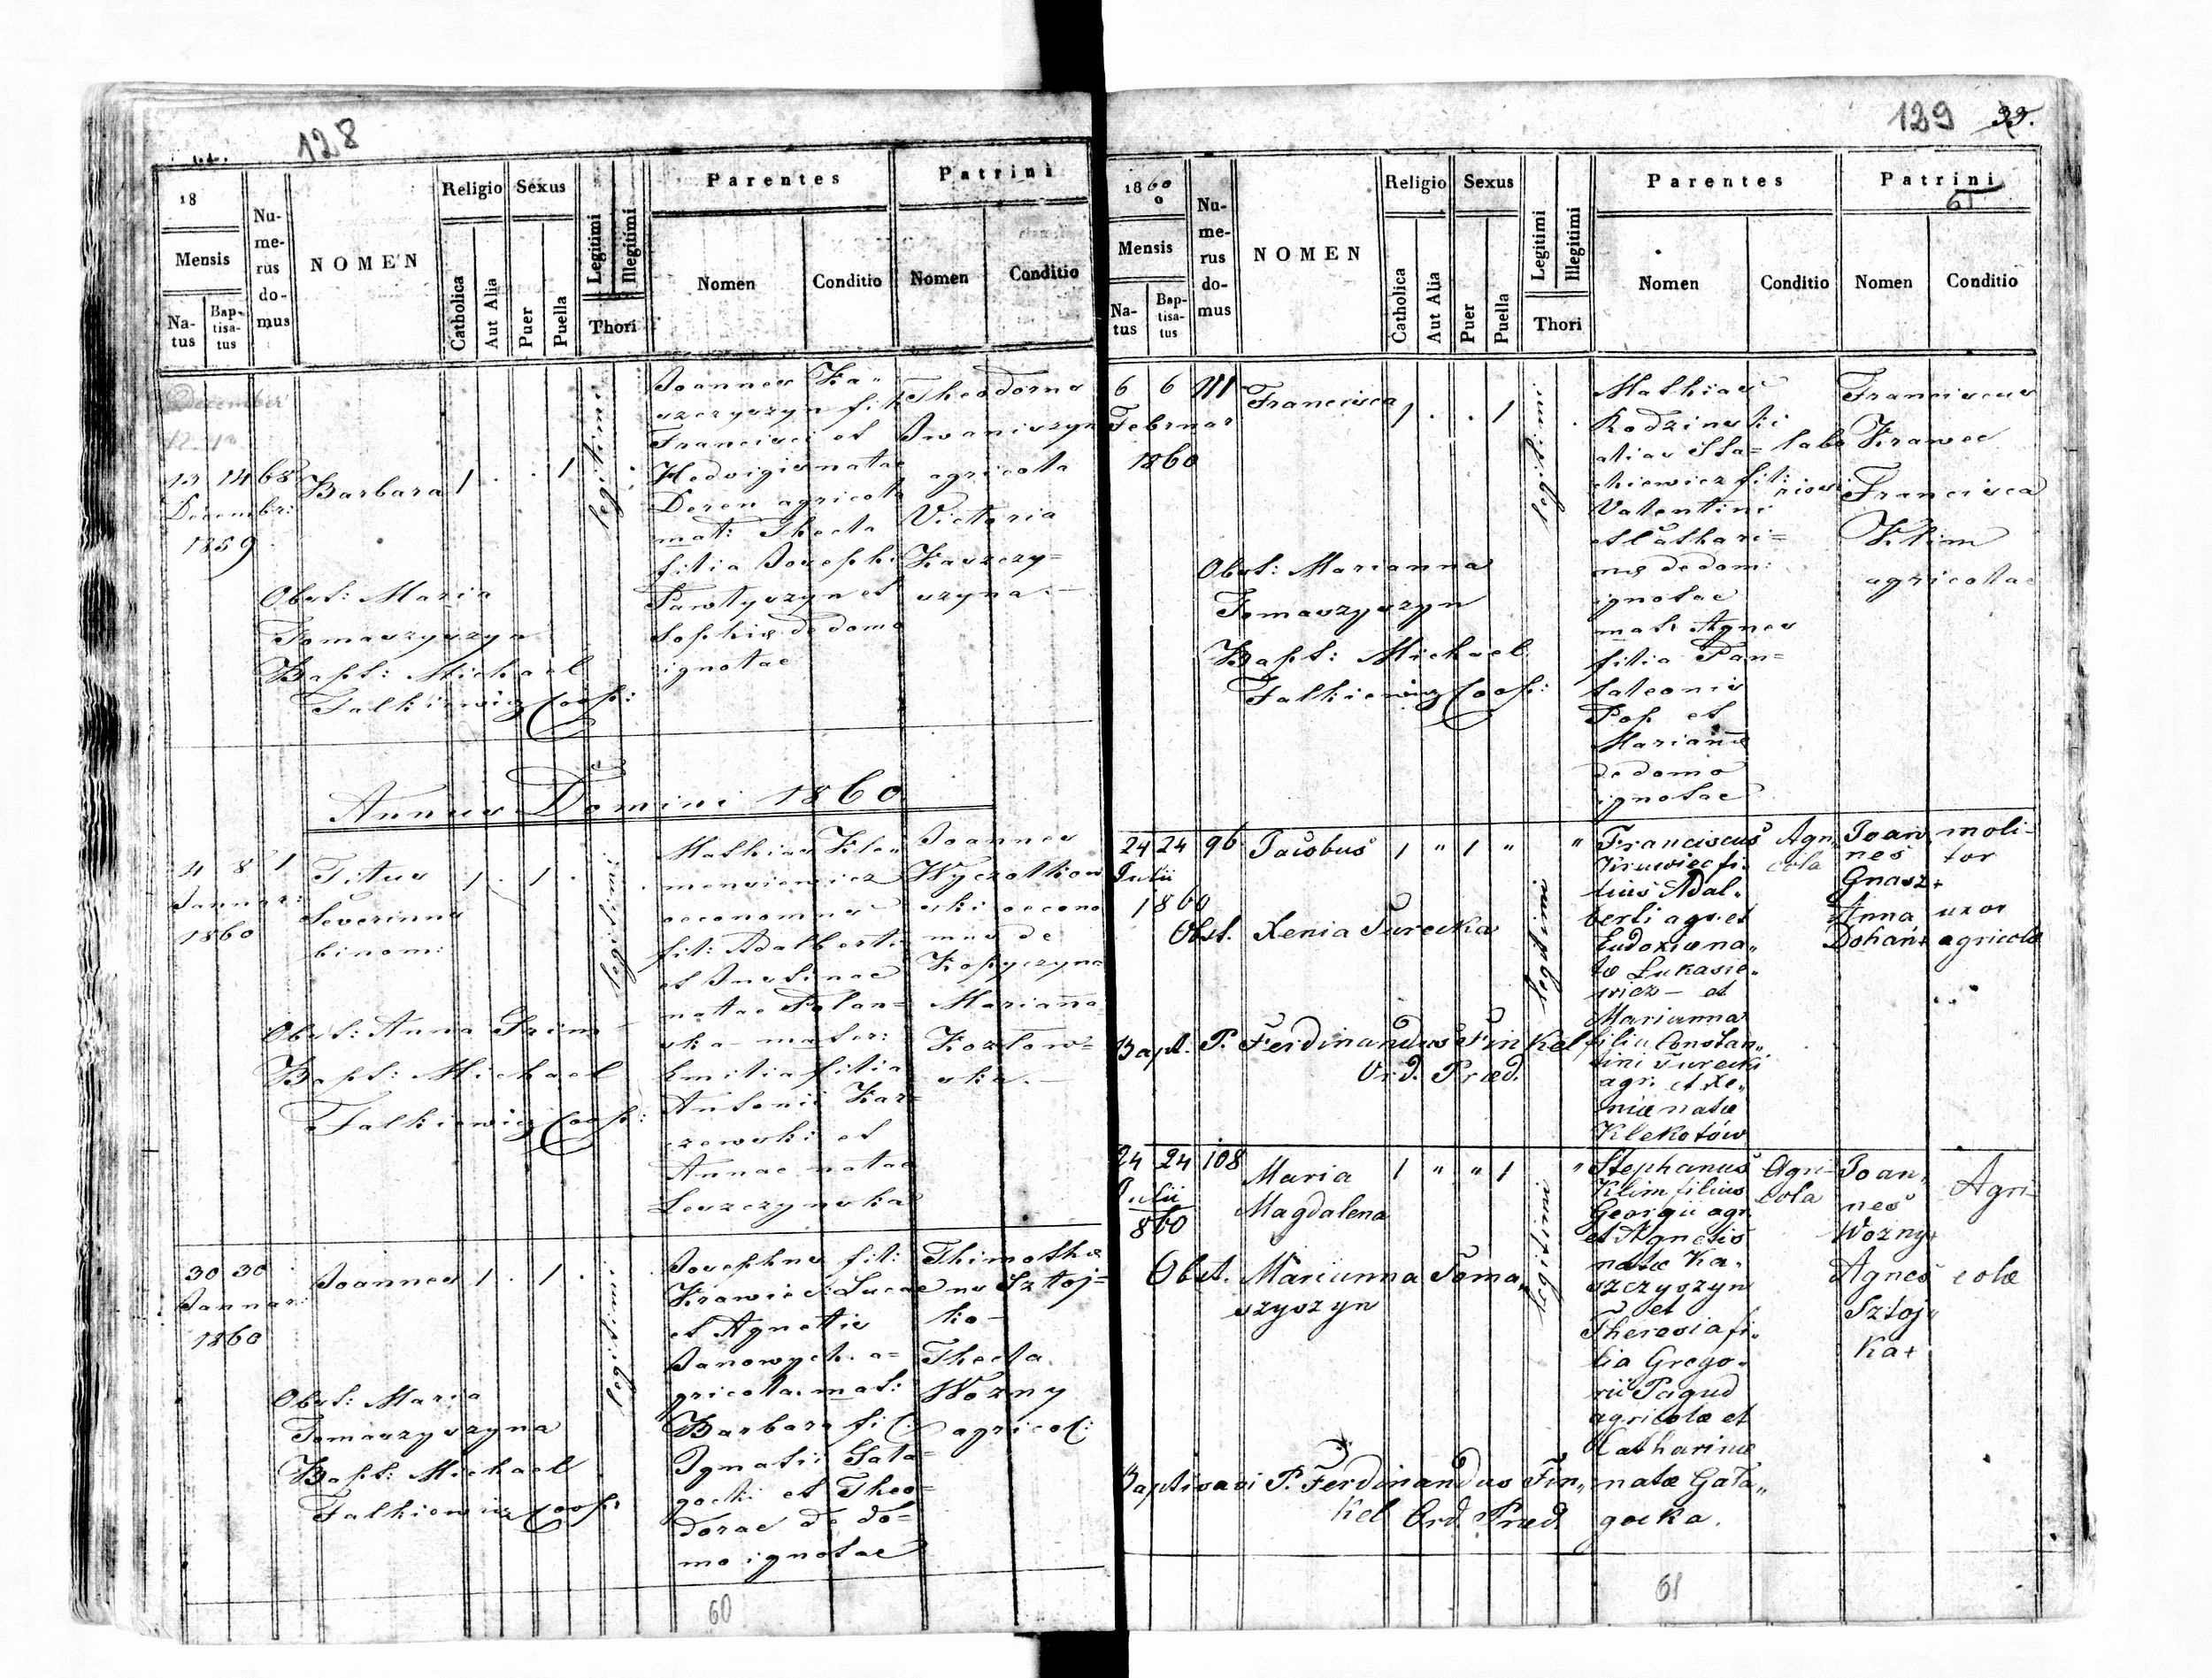 128
18
Mensis
Na-
tus
Bap-
tisa-
tus
Nu-
me-
rus
do-
mus
NOMEN
Religio
Catholica
Aut Alia
Sexus
Puer
Puella
Legitimi
Illegitimi
Thori
Parentes
Nomen
Conditio
Patrini
Nomen
Conditio
December
13 14 68
Decembr:
1859
Barbara 1 . . 1
legitimi
Obst: Maria
Tomaszyszyn
Bapt: Michael
Falkiewicz Coop:
Joannes Ka-
szczyszyn fil:
Francisci et
Hedvigis natae
Deren agricola
mat: Thecla
filia Josephi
Pawlyszyn et
Sophiae de domo
ignotae
Theodorus
Iwaniszyn
agricola
Victoria
Kaszczy=
szyna.
Annus Domini 1860
4 8 1
Januar:
1860
Titus 1 . 1 .
Severinus
binom:
legitimi
Obst: Anna Grim
Bapt: Michael
Falkiewicz Coop:
Mathias Kle-
mensiewicz
oeconomus
fil: Adalberti
et Justinae
natae Polan=
ska mater:
Emilia filia
Antonii Kar=
czewski et
Annae natae
Leszczynska
Joannes
Wyczolkow
ski oecono
mus de
Kopyczyna
Marianna
Kozlow=
ska.
30 30
Januar:
1860
Joannes 1 . 1 .
legitimi
Obst: Maria
Tomaszyszyna
Bapt: Michael
Falkiewicz Coop:
Josephus fil:
Krawiec Lucae
et Agnetis
Janowych. a=
gricola. mat:
Barbara fil:
Ignatii Gala=
gocki et Theo=
dorae de do=
mo ignotae
Thimothe
us Sztoj=
ko
Thecla
Wozny
agricol:
60
129 33.
1860
Mensis
Na-
tus
Bap-
tisa-
tus
Nu-
me-
rus
do-
mus
NOMEN
Religio
Catholica
Aut Alia
Sexus
Puer
Puella
Legitimi
Illegitimi
Thori
Parentes
Nomen
Conditio
Patrini
61
Nomen
Conditio
6 6 111
Februar
1860
Francisca 1 . . 1
legitimi
Obst: Marianna
Tomaszyszyn
Bapt: Michael
Falkiewicz Coop:
Mathias
Rodzinski
alias Sta=
chiewicz fil:
Valentini
et Cathari=
nae de dom:
ignotae
mat: Agnes
filia Pan=
taleonis
Pop et
Mariannae
de domo
ignotae
labo
riosi
Franciscus
Krawec
Francisca
Klim
agricolae
24 24 96
Julii
1860
Jacobus 1 " 1 " "
legitimi
Obst. Xenia Turecka
Bapt. P. Ferdinandus Finkel
Ord. Præd.
Franciscus
Krawiec fi-
lius Adal-
berti agr. et
Eudoxiæ na-
tæ Lukasie-
wicz - et
Marianna
filia Constan-
tini Turecki
agr. et Xe-
niæ natæ
Klekotów
Agri-
cola
Joan
nes
Gnasz+
Anna
Dohan+
moli-
tor
uxor
agricolæ
24 24 108
Julii
860
Maria 1 " " 1 "
Magdalena
legitimi
Obst. Marianna Toma-
szyszyn
Baptisavi P. Ferdinandus Fin-
kel Ord. Præd.
Stephanus
Klim filius
Georgii agr.
et Agnetis
natæ Ka-
szczyszyn
et
Theresia fi-
lia Grego-
rii Pagud
agricolæ et
Katharinæ
natæ Gała-
gocka.
Agri-
cola
Joan-
nes
Wozny+
Agnes
Sztoj-
ka+
Agri-
colæ
61